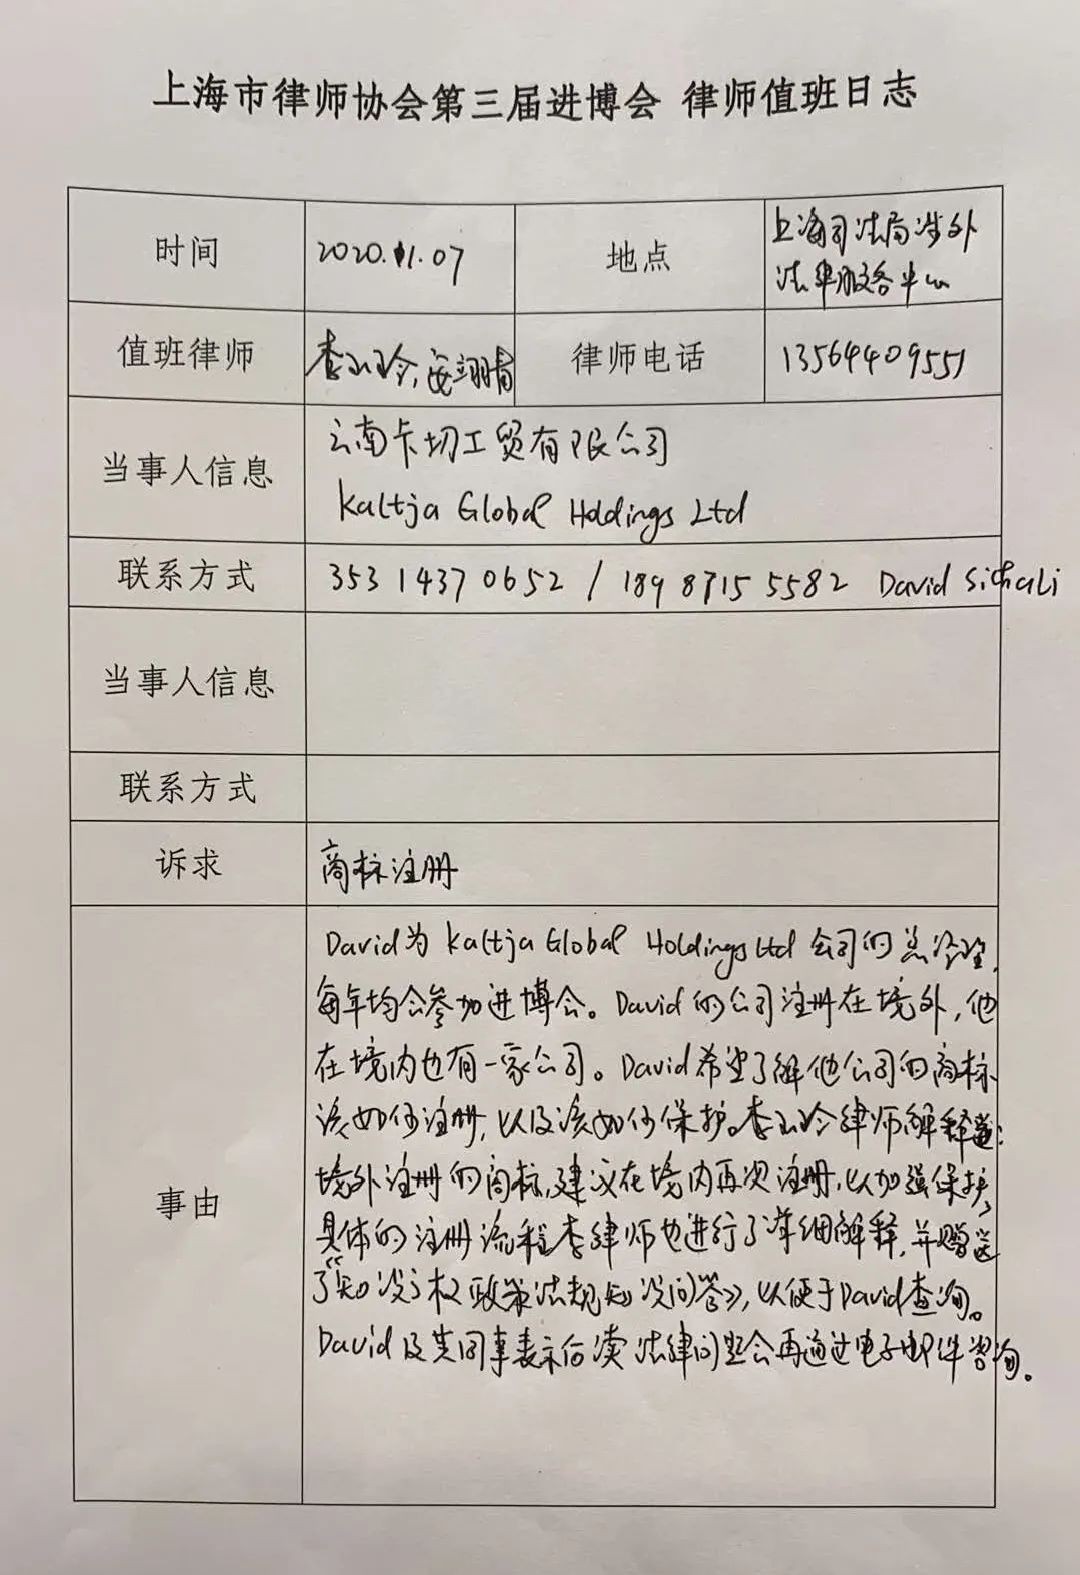 上海市律师协会第三届进博会 律师值班日志
时间 2020.11.07 地点 上海司法局涉外
法律服务中心
值班律师 李小玲,安翊青 律师电话 13564409551
当事人信息 云南卡切工贸有限公司
Kaltja Global Holdings Ltd
联系方式 353 1437 0652 / 189 8715 5582 David Sichali
当事人信息
联系方式
诉求 商标注册
事由
David为 Kaltja Global Holdings Ltd 公司的总经理,
每年均会参加进博会。David的公司注册在境外,他
在境内也有一家公司。David希望了解他公司的商标
该如何注册,以及该如何保护。李小玲律师解释道:
境外注册的商标,建议在境内再次注册,以加强保护,
具体的注册流程李律师也进行了详细解释,并赠送
了《知识产权政策法规知识问答》,以便于David查询。
David及其同事表示后续法律问题会再通过电子邮件咨询。